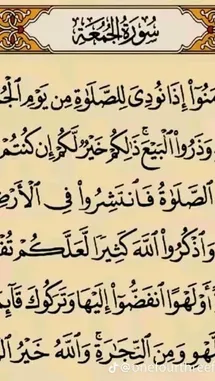 سُورَةُ الجُمُعَةِ
مَنُوٓا۟ إِذَا نُودِىَ لِلصَّلَوٰةِ مِن يَوْمِ ٱلْجُ
وَذَرُوا۟ ٱلْبَيْعَ ۚ ذَٰلِكُمْ خَيْرٌ لَّكُمْ إِن كُنتُمْ
ٱلصَّلَوٰةُ فَٱنتَشِرُوا۟ فِى ٱلْأَرْضِ
وَٱذْكُرُوا۟ ٱللَّهَ كَثِيرًا لَّعَلَّكُمْ تُفْ
أَوْ لَهْوًا ٱنفَضُّوٓا۟ إِلَيْهَا وَتَرَكُوكَ قَآئِمً
لَّهْوِ وَمِنَ ٱلتِّجَٰرَةِ ۚ وَٱللَّهُ خَيْرُ ٱلر